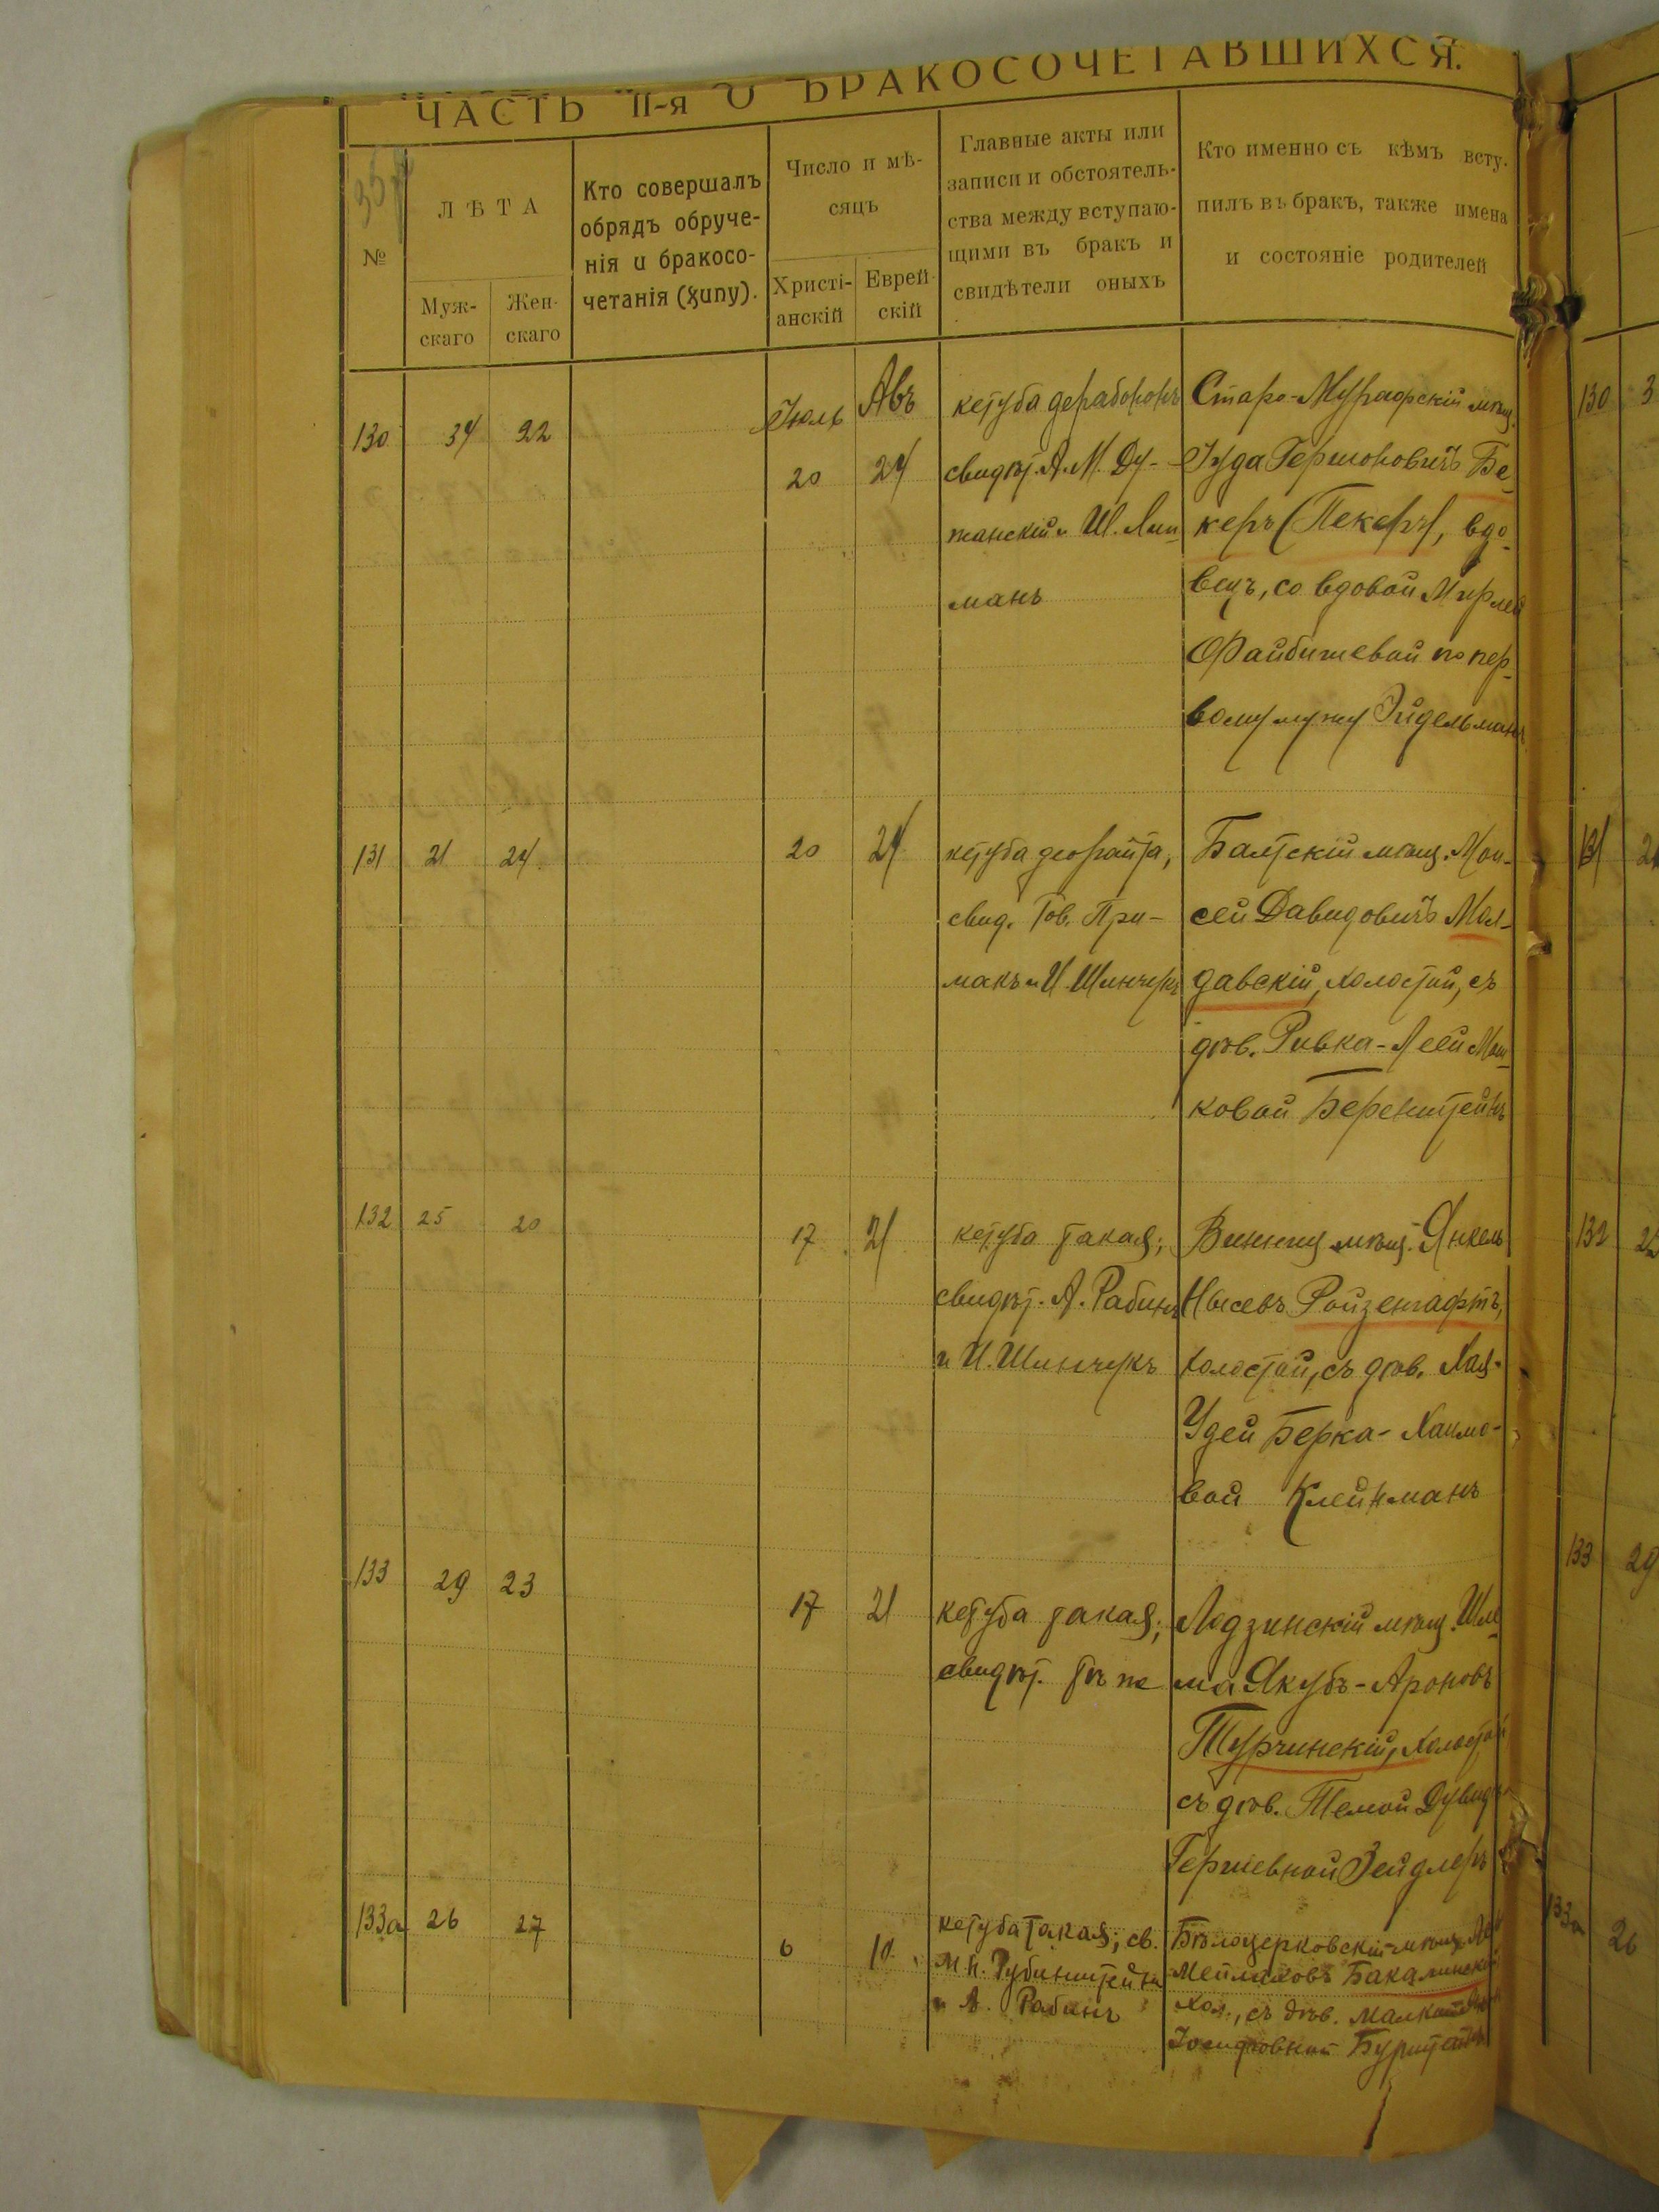 ЧАСТЬ II-я О БРАКОСОЧЕТАВШИХСЯ.
№
ЛѢТА
Муж-
скаго
Жен-
скаго
Кто совершалъ
обрядъ обруче-
нія и бракосо-
четанія (хипу).
Число и мѣ-
сяцъ
Христі-
анскій
Еврей-
скій
Главные акты или
записи и обстоятель-
ства между вступаю-
щими въ бракъ и
свидѣтели оныхъ
Кто именно съ кѣмъ всту-
пилъ въ бракъ, также имена
и состояніе родителей
130 34 22
Іюль Авъ
20 24
кетуба дерабононъ
свидѣт. А. М. Ду-
манскій и Ш. Лип-
манъ
Старо-Мурафскій мѣщ.
Іуда Гершоновичъ Бе-
керъ (Пекеръ), вдо-
вецъ, со вдовой Мирлей
Файбишевой по пер-
вому мужу Эйдельманъ
131 21 24 20 24
кетуба деорайта,
свид. Гов. При-
макъ и И. Шинчукъ
Балтскій мѣщ. Мои-
сей Давидовичъ Мол-
давскій, холостой, съ
дѣв. Ривка-Леей Мош-
ковой Беренштейнъ
132 25 20 17 21
кетуба такая;
свидѣт. А. Рабинъ
и И. Шинчукъ
Винниц. мѣщ. Янкель
Нысевъ Ройзенгафтъ,
холостой, съ дѣв. Хая-
Удей Берка-Хаимо-
вой Клейнманъ
133 29 23 17 21
кетуба такая;
свидѣт. тѣ же
Лодзинскій мѣщ. Шле-
ма Якубъ-Ароновъ
Турчинскій, холостой
съ дѣв. Темой Дувидъ-
Гершевной Зейдлеръ
133а 26 27 6 10
кетуба такая; св.
М Н. Рубинштейнъ
и А. Рабинъ
Бѣлоцерковскій мѣщ.
Мейлаховъ Бакалинскій
хол., съ дѣв.
Іосифовной
130 3
131 2
132
133 29
133а 26